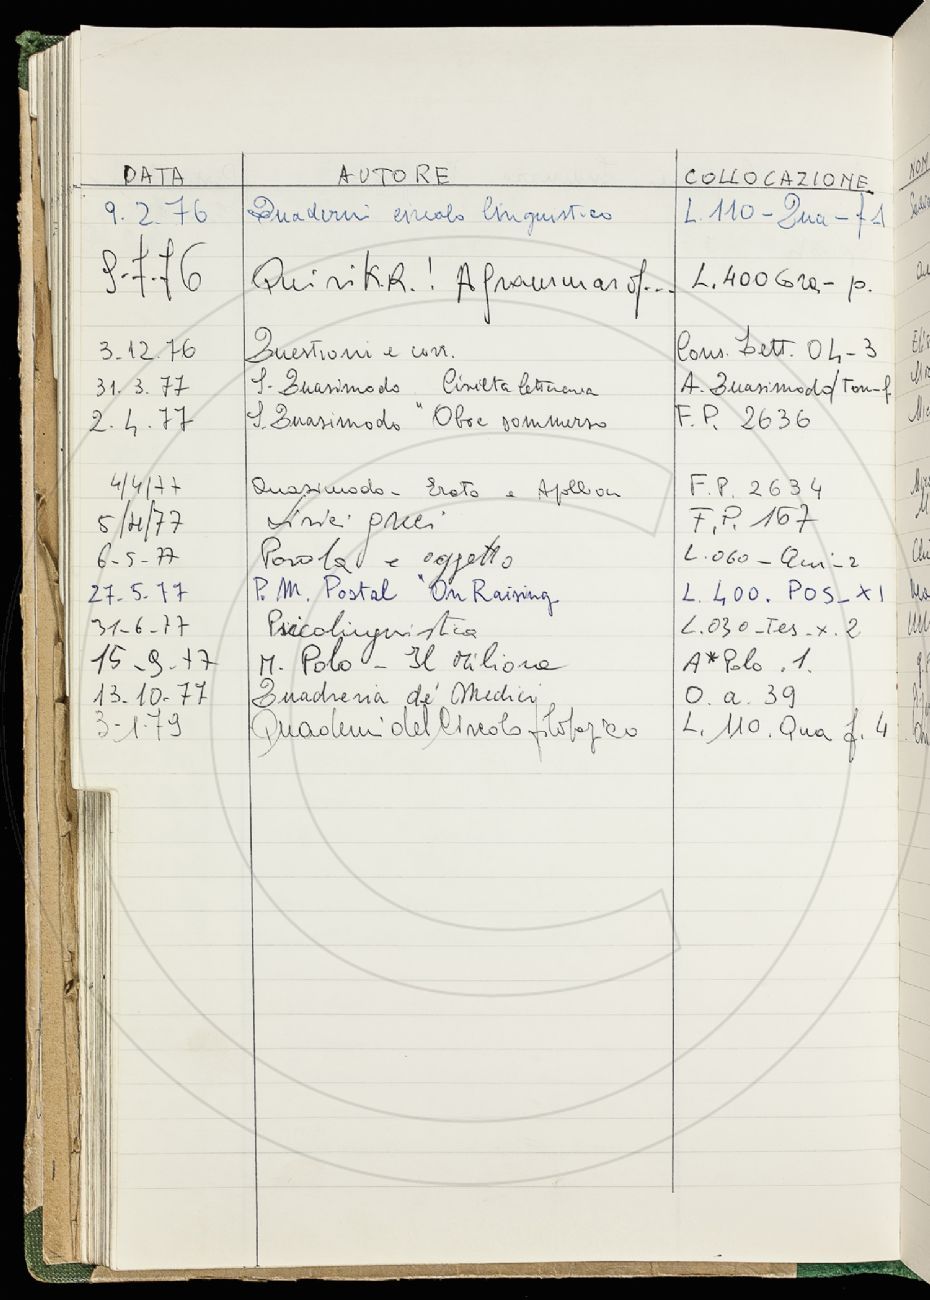 DATA AUTORE COLLOCAZIONE
9.2.76 Quaderni circolo linguistico L.110-Qua-f1
9-7-76 Quirik R.! A grammar of... L.400 Gra- p.
3.12.76 Questioni e corr. Cons. Lett. 04-3
31.3.77 S. Quasimodo Civiltà letteraria A. Quasimodo/Ton-f
2.4.77 S. Quasimodo "Oboe sommerso F.P. 2636
4/4/77 Quasimodo- Erato e Apollion F.P. 2634
5/4/77 Lirici greci F.P. 167
6-5-77 Parola e oggetto L.060-Qui-2
27.5.77 P.M. Postal "On Raising L.400. POS-X1
31-6-77 Psicolinguistica L.030-Tes-x.2
15-9-77 M. Polo - Il Milione A*Polo.1.
13.10.77 Quadreria de' Medici O.a.39
3-1-79 Quaderni del Circolo filologico L.110.Qua f.4